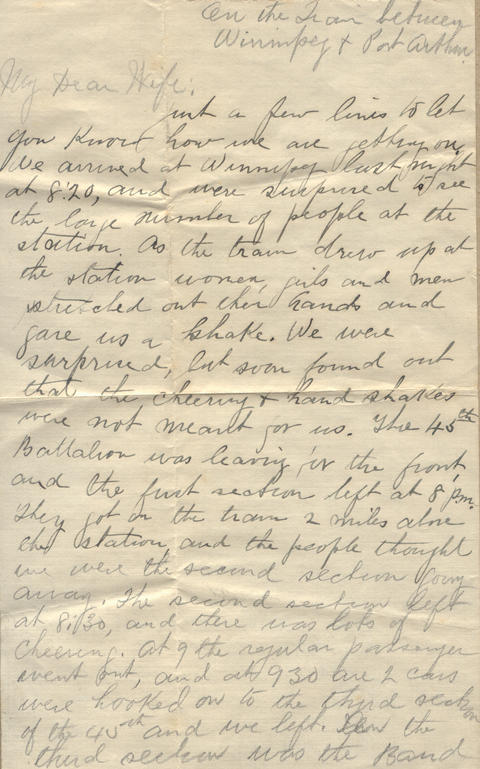 On the Train between
Winnipeg & Port Arthur
My Dear Wife:
Just a few lines to let
you know how we are getting on,
We arrived at Winnipeg last night
at 8:20, and were surprised to see
the large number of people at the
station. As the train drew up at
the station women, girls and men
stretched out their hands and
gave us a shake. We were
surprised, but soon found out
that the cheering & hand shakes
were not meant for us. The 45th
Battalion was leaving for the front
and the first section left at 8 p.m.
They got on the train 2 miles
the station, and the people thought
we were the second section going
away. The second section left
at 8:30, and there was lots of
cheering. At 9 the regular passenger
went out, and at 930 are 2 cars
were hooked on to the third section
of the 45th and we left. the
third section was the Band